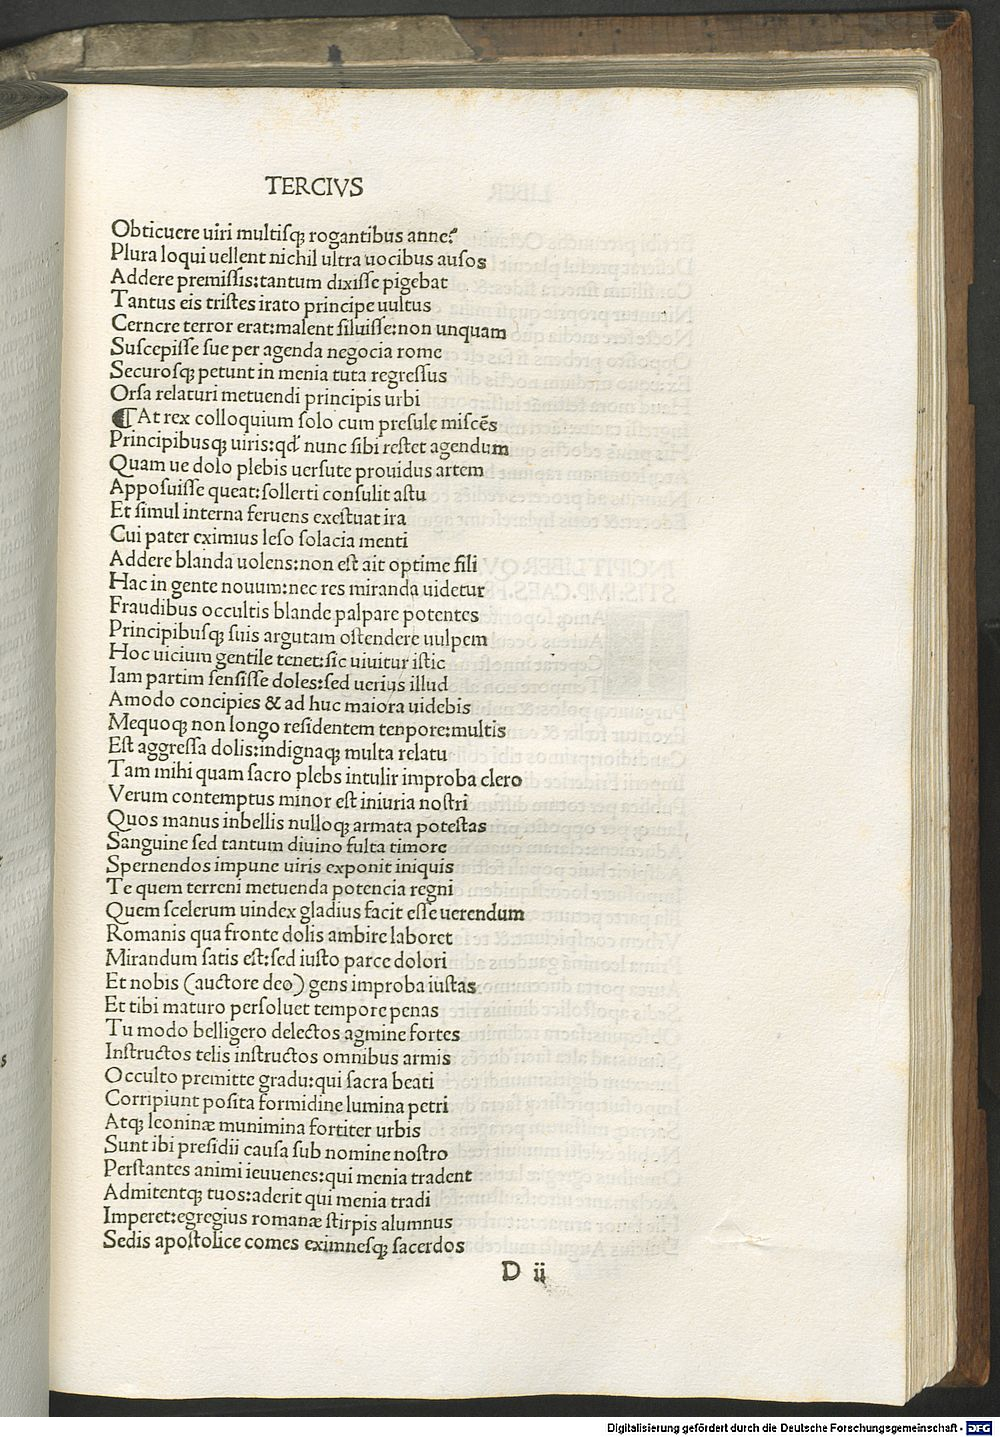 TERCIVS
Obticuere uiri multisq; rogantibus anne?
Plura loqui uellent nichil ultra uocibus ausos
Addere premissis:tantum dixisse pigebat
Tantus eis tristes irato principe uultus
Cerncre terror erat:malent siluisse:non unquam
Suscepisse sue per agenda negocia rome
Securosq; petunt in menia tuta regressus
Orsa relaturi metuendi principis urbi
¶At rex colloquium solo cum presule miscēs
Principibusq; uiris:qd' nunc sibi restet agendum
Quam ue dolo plebis uersute prouidus artem
Apposuisse queat:sollerti consulit astu
Et simul interna feruens exestuat ira
Cui pater eximius leso solacia menti
Addere blanda uolens:non est ait optime fili
Hac in gente nouum:nec res miranda uidetur
Fraudibus occultis blande palpare potentes
Principibusq; suis argutam ostendere uulpem
Hoc uicium gentile tenet:sic uiuitur istic
Iam partim sensisse doles:sed uerius illud
Amodo concipies & ad huc maiora uidebis
Mequoq; non longo residentem tenpore:multis
Est aggressa dolis:indignaq; multa relatu
Tam mihi quam sacro plebs intulir improba clero
Verum contemptus minor est iniuria nostri
Quos manus inbellis nulloq; armata potestas
Sanguine sed tantum diuino fulta timore
Spernendos impune uiris exponit iniquis
Te quem terreni metuenda potencia regni
Quem scelerum uindex gladius facit esse uerendum
Romanis qua fronte dolis ambire laboret
Mirandum satis est:sed iusto parce dolori
Et nobis (auctore deo) gens improba iustas
Et tibi maturo persoluet tempore penas
Tu modo belligero delectos agmine fortes
Instructos telis instructos omnibus armis
Occulto premitte gradu:qui sacra beati
Corripiunt posita formidine lumina petri
Atq; leoninæ munimina fortiter urbis
Sunt ibi presidii causa sub nomine nostro
Perstantes animi ieuuenes:qui menia tradent
Admitentq; tuos:aderit qui menia tradi
Imperet:egregius romanæ stirpis alumnus
Sedis apostolice comes eximnesq; sacerdos
D ii
Digitalisierung gefördert durch die Deutsche Forschungsgemeinschaft - DFG